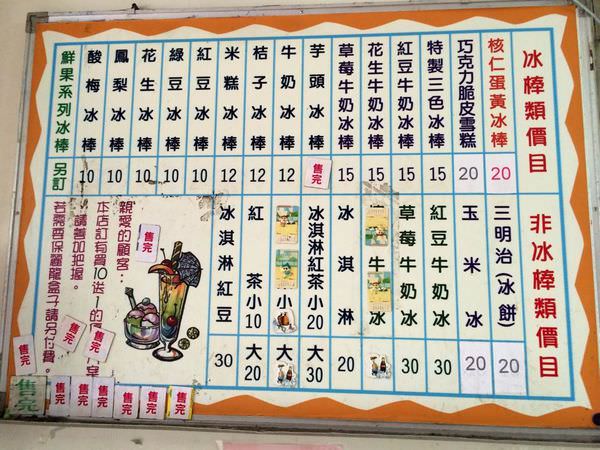 冰棒類價目
核仁蛋黃冰棒 20
巧克力脆皮雪糕 20
特製三色冰棒 15
紅豆牛奶冰棒 15
花生牛奶冰棒 15
草莓牛奶冰棒 15
芋頭冰棒 售完
牛奶冰棒 12
桔子冰棒 12
米糕冰棒 12
紅豆冰棒 10
綠豆冰棒 10
花生冰棒 10
鳳梨冰棒 10
酸梅冰棒 10
鮮果系列冰棒 另訂
非冰棒類價目
三明治(冰餅) 20
玉米冰 20
紅豆牛奶冰 30
草莓牛奶冰 30
牛冰
冰淇淋 20
冰淇淋紅茶 小20 大30
小 大
紅茶 小10 大20
冰淇淋紅豆 30
親愛的顧客：
本店訂有買10送1的
請善加把握。
若需要保麗龍盒子請另付費。
售完
售完
售完
售完
售完
售完
售完
售完
售完
售完
售完